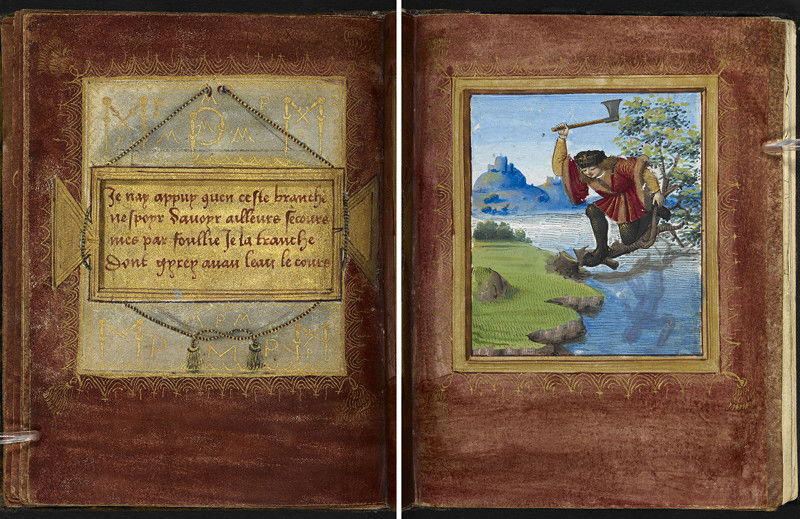 Je nay appuy quen ceste branche
ne spoyr davoyr ailleurs secours
mes par foullie Je la tranche
Dont gyrey avau leau le cours